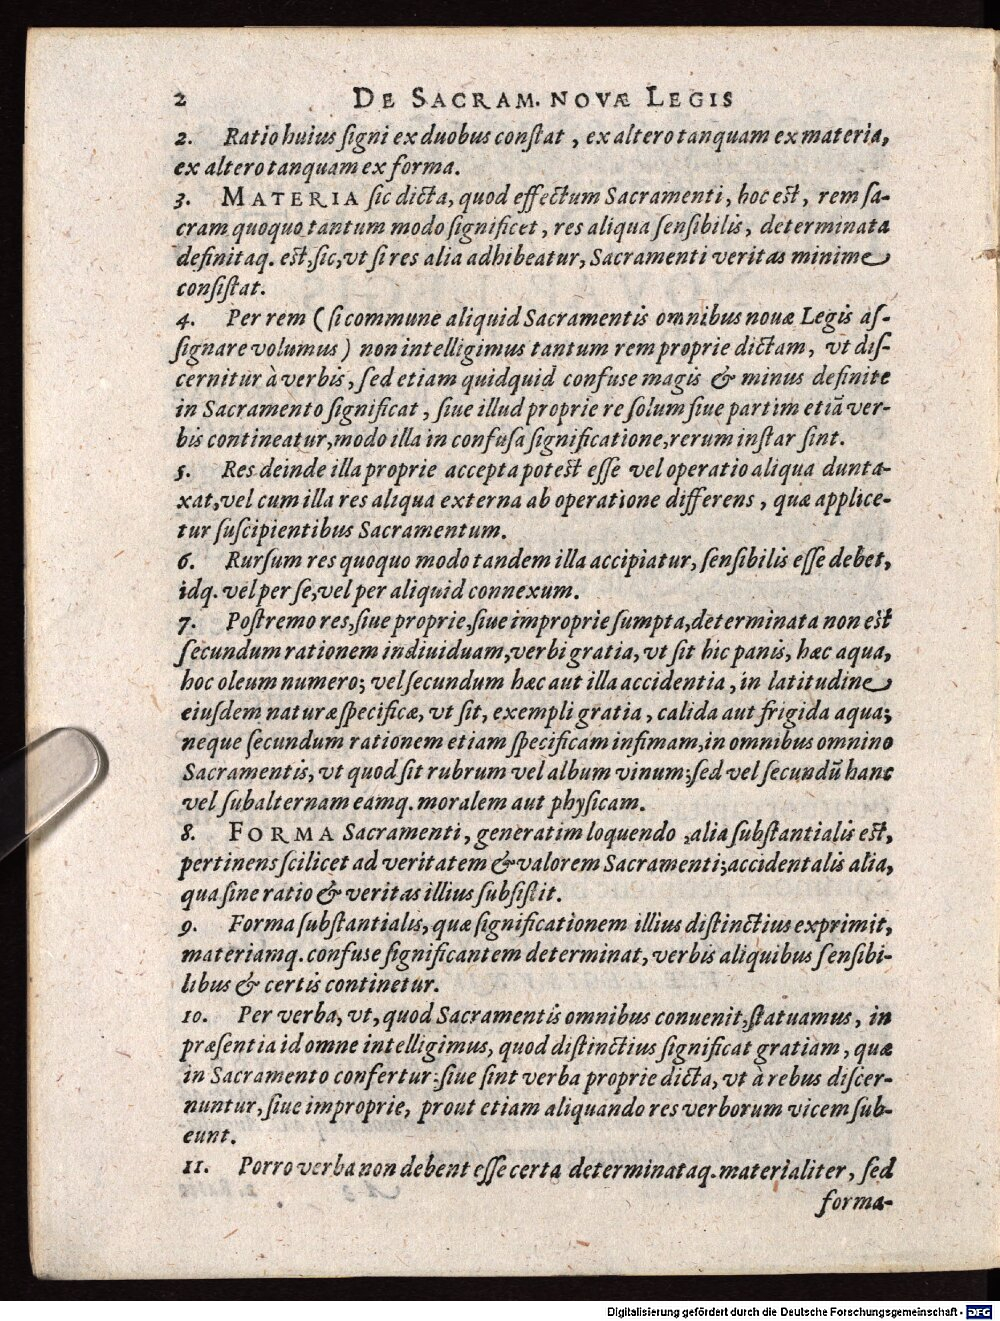 2 DE SACRAM. NOVÆ LEGIS
2. Ratio huius ſigni ex duobus conſtat, ex altero tanquam ex materia,
ex altero tanquam ex forma.
3. MATERIA ſic dicta, quod effectum Sacramenti, hoc eſt, rem ſa-
cram quoquo tantum modo ſignificet, res aliqua ſenſibilis, determinata
definitaq. eſt, ſic, vt ſi res alia adhibeatur, Sacramenti veritas minime
conſiſtat.
4. Per rem (ſi commune aliquid Sacramentis omnibus nouæ Legis aſ-
ſignare volumus) non intelligimus tantum rem proprie dictam, vt diſ-
cernitur à verbis, ſed etiam quidquid confuse magis & minus definite
in Sacramento ſignificat, ſiue illud proprie re ſolum ſiue partim etiā ver-
bis contineatur, modo illa in confuſa ſignificatione, rerum inſtar ſint.
5. Res deinde illa proprie accepta poteſt eſſe vel operatio aliqua dunta-
xat, vel cum illa res aliqua externa ab operatione differens, quæ applice-
tur ſuſcipientibus Sacramentum.
6. Rurſum res quoquo modo tandem illa accipiatur, ſenſibilis eſſe debet,
idq. vel per ſe, vel per aliquid connexum.
7. Poſtremo res, ſiue proprie, ſiue improprie ſumpta, determinata non eſt
ſecundum rationem indiuiduam, verbi gratia, vt ſit hic panis, hæc aqua,
hoc oleum numero; vel ſecundum hæc aut illa accidentia, in latitudine
eiuſdem naturæ ſpecificæ, vt ſit, exempli gratia, calida aut frigida aqua;
neque ſecundum rationem etiam ſpecificam infimam, in omnibus omnino
Sacramentis, vt quod ſit rubrum vel album vinum; ſed vel ſecundū hanc
vel ſubalternam eamq. moralem aut phyſicam.
8. FORMA Sacramenti, generatim loquendo, alia ſubſtantialis eſt,
pertinens ſcilicet ad veritatem & valorem Sacramenti; accidentalis alia,
qua ſine ratio & veritas illius ſubſiſtit.
9. Forma ſubſtantialis, quæ ſignificationem illius diſtinctius exprimit,
materiamq. confuse ſignificantem determinat, verbis aliquibus ſenſibi-
libus & certis continetur.
10. Per verba, vt, quod Sacramentis omnibus conuenit, ſtatuamus, in
præſentia id omne intelligimus, quod diſtinctius ſignificat gratiam, quæ
in Sacramento confertur: ſiue ſint verba proprie dicta, vt à rebus diſcer-
nuntur, ſiue improprie, prout etiam aliquando res verborum vicem ſub-
eunt.
11. Porro verba non debent eſſe certa determinataq. materialiter, ſed
forma-
Digitalisierung gefördert durch die Deutsche Forschungsgemeinschaft - DFG